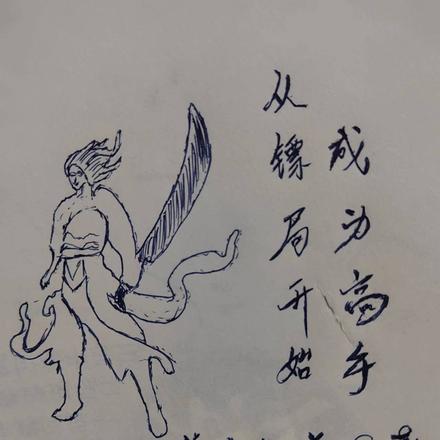 从镖局开始
成为高手